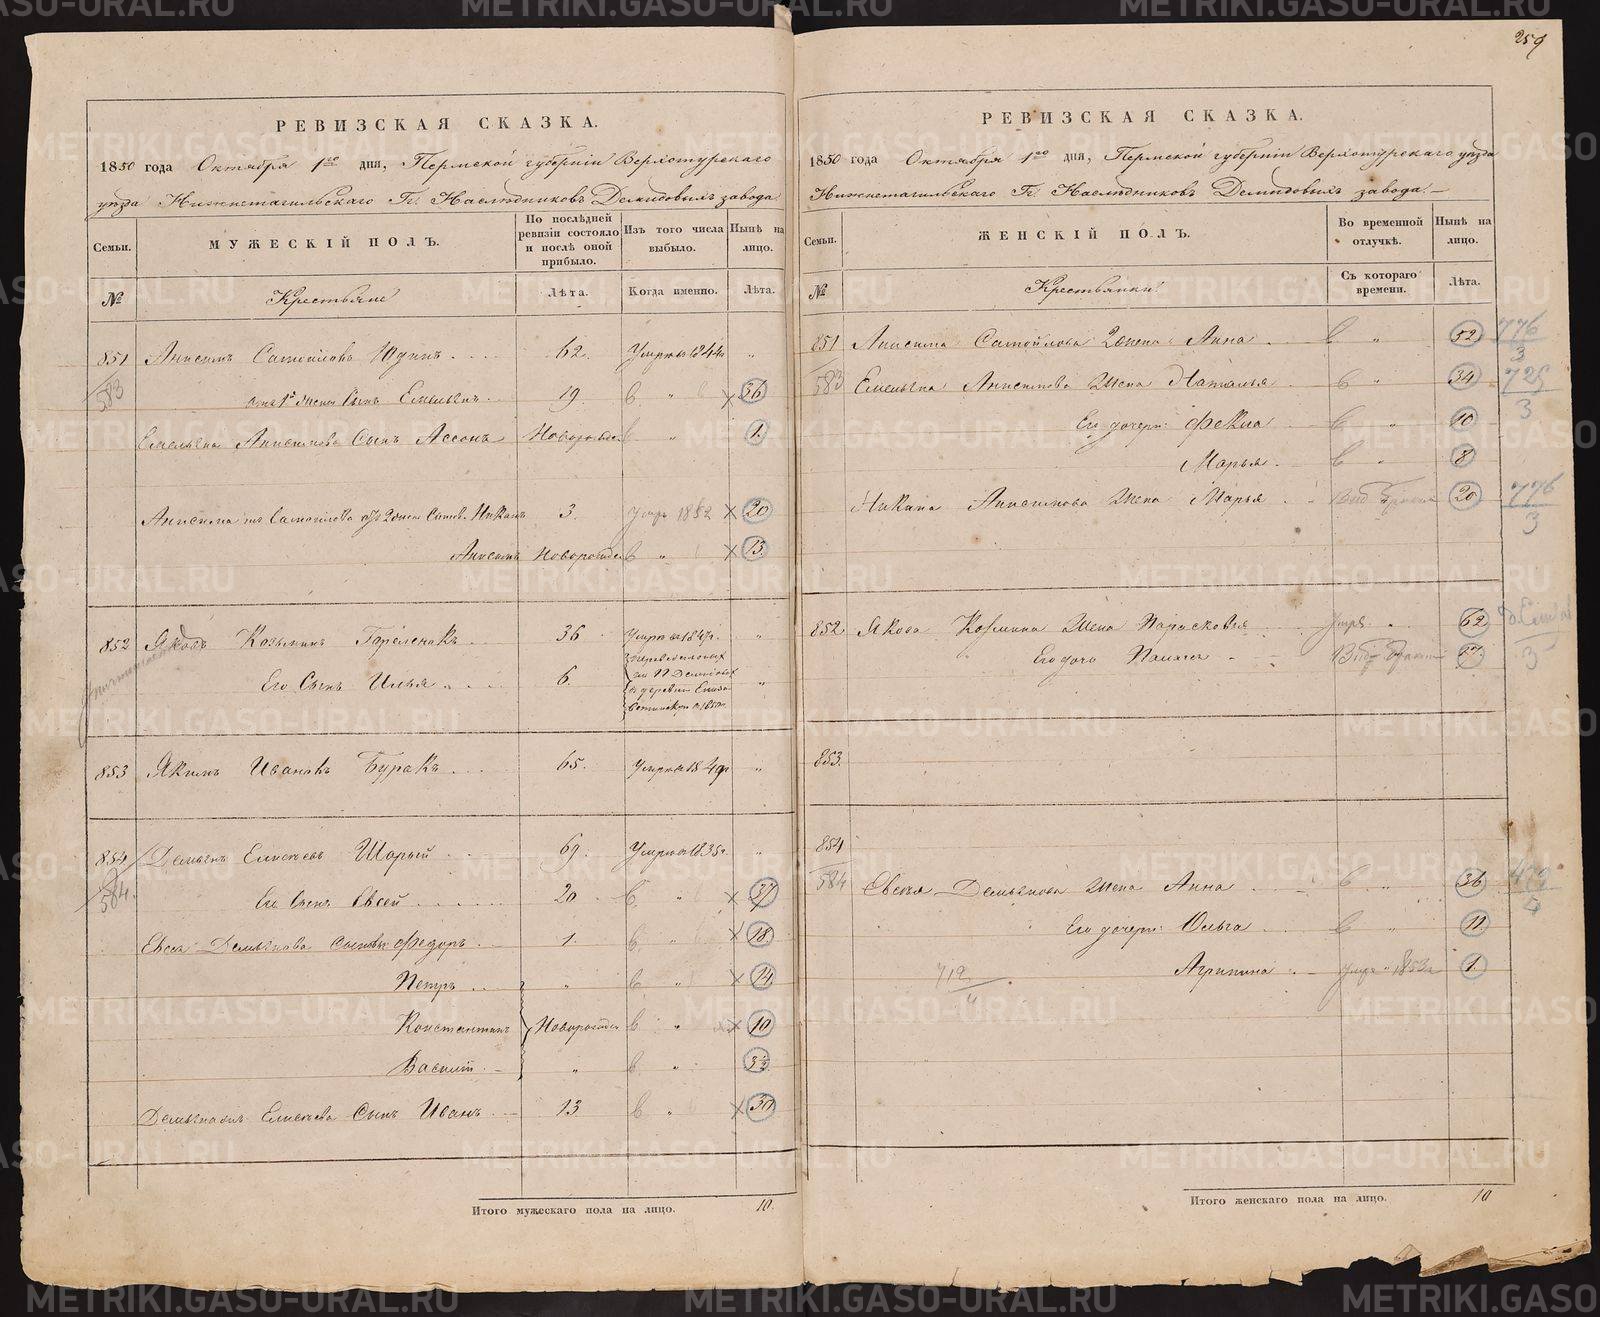 259
РЕВИЗСКАЯ СКАЗКА.
1850 года Октября 1го дня, Пермской губерніи Верхотурскаго
уѣзда Нижнетагильскаго Гг. Наслѣдниковъ Демидовыхъ завода
Семьи. МУЖЕСКІЙ ПОЛЪ. По послѣдней ревизіи состояло и послѣ оной прибыло. Изъ того числа выбыло. Нынѣ на лицо.
№ Крестьяне Лѣта. Когда именно. Лѣта.
851 Анисимъ Самойловъ Юдинъ 62. Умръ 1844 "
583 отъ 1й жены Сынъ Емельянъ 19. " 36
Емельяна Анисимова Сынъ Ассонъ Новорожде " 1.
Анисима Самойлова отъ 2 жены Сынъ Никанъ 3. Умръ 1852 20
Анисимъ Новорожде " 13.
852 Яковъ Козьминъ Горѣленокъ 36 Умръ 1849. "
Его Сынъ Илья 6. "
853 Якимъ Ивановъ Буракъ 65. Умръ 1849 "
854 Демьянъ Елисѣевъ Шорый 69. Умръ 1835. "
584 Его Сынъ Евсей 20 " 37
Евсея Демьянова Сыновья Федоръ 1. " 18.
Петръ " " 14
Константинъ Новорожде " 10
Василій " " 3½
Демьяновъ Елисѣева Сынъ Иванъ 13 " 30
Итого мужескаго пола на лицо. 10.
РЕВИЗСКАЯ СКАЗКА.
1850 года Октября 1го дня, Пермской губерніи Верхотурскаго уѣзда
Нижнетагильскаго Гг. Наслѣдниковъ Демидовыхъ завода.
Семьи. ЖЕНСКІЙ ПОЛЪ. Во временной отлучкѣ. Нынѣ на лицо.
№ Крестьянки. Съ котораго времени. Лѣта.
851 Анисима Самойлова 2 жена Анна " 52 776/3
583 Емельяна Анисимова Жена Наталья " 34 725/3
Его дочери Фекла " 10
Марья " 8
Никана Анисимова Жена Марья 20 776/3
852 Якова Козмина Жена Парасковья 62
Его дочь 27.
853.
854
584 Евсея Демьянова Жена Анна " 36
Его дочери Ольга " 11.
719/4 Агрипина Умръ 1853 1.
Итого женскаго пола на лицо. 10
METRIKI.GASO-URAL.RU